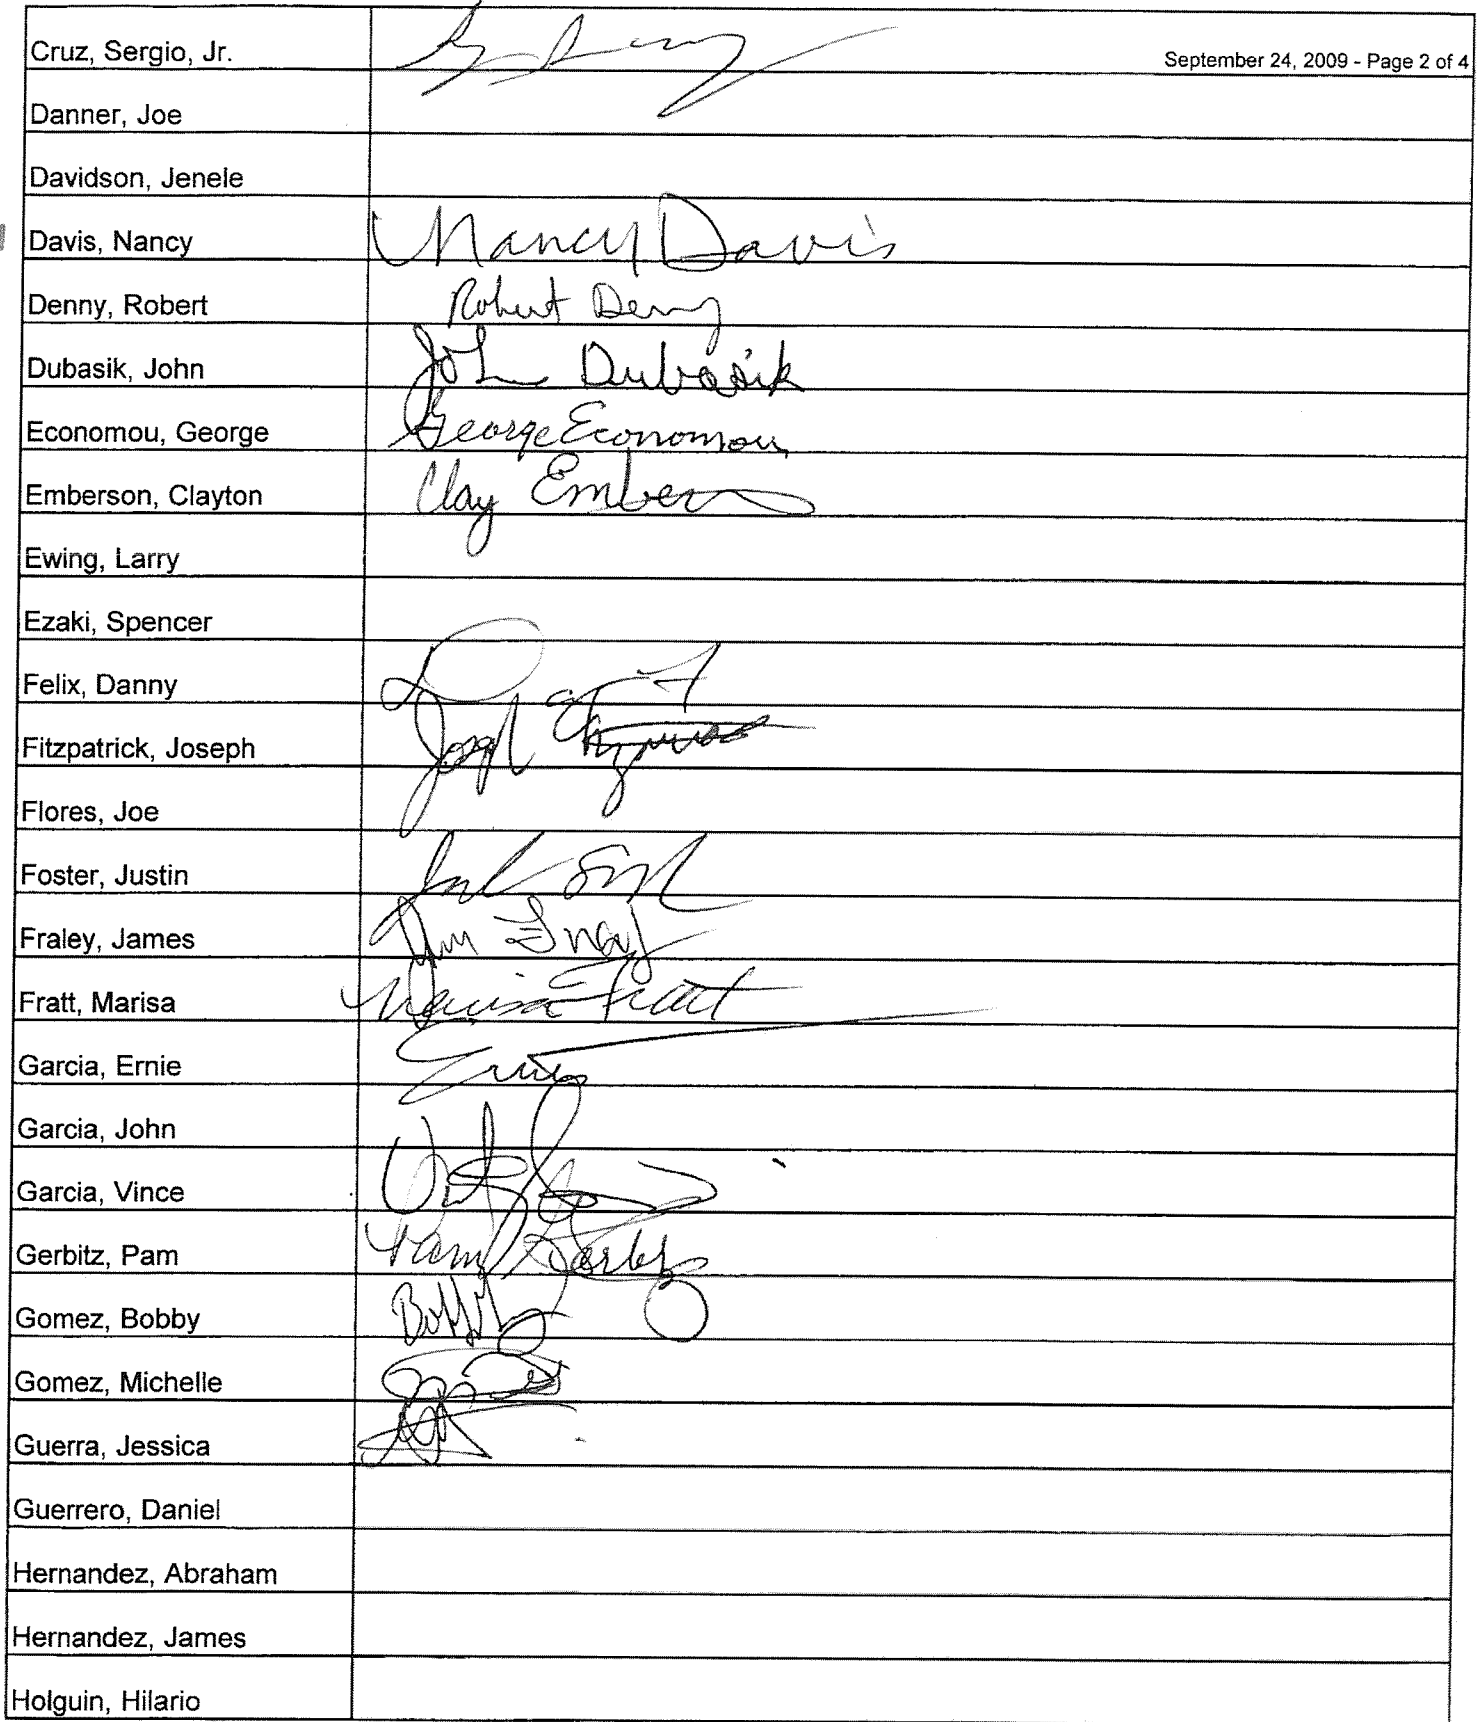 Cruz, Sergio, Jr.
September 24, 2009 - Page 2 of 4
Danner, Joe
Davidson, Jenele
Davis, Nancy Nancy Davis
Denny, Robert Robert Denny
Dubasik, John John Dubasik
Economou, George George Economou
Emberson, Clayton Clay Emberson
Ewing, Larry
Ezaki, Spencer
Felix, Danny
Fitzpatrick, Joseph Joseph
Flores, Joe
Foster, Justin
Fraley, James Jim
Fratt, Marisa Marisa Fratt
Garcia, Ernie Ernie
Garcia, John
Garcia, Vince
Gerbitz, Pam Pam Gerbitz
Gomez, Bobby Bobby
Gomez, Michelle
Guerra, Jessica
Guerrero, Daniel
Hernandez, Abraham
Hernandez, James
Holguin, Hilario